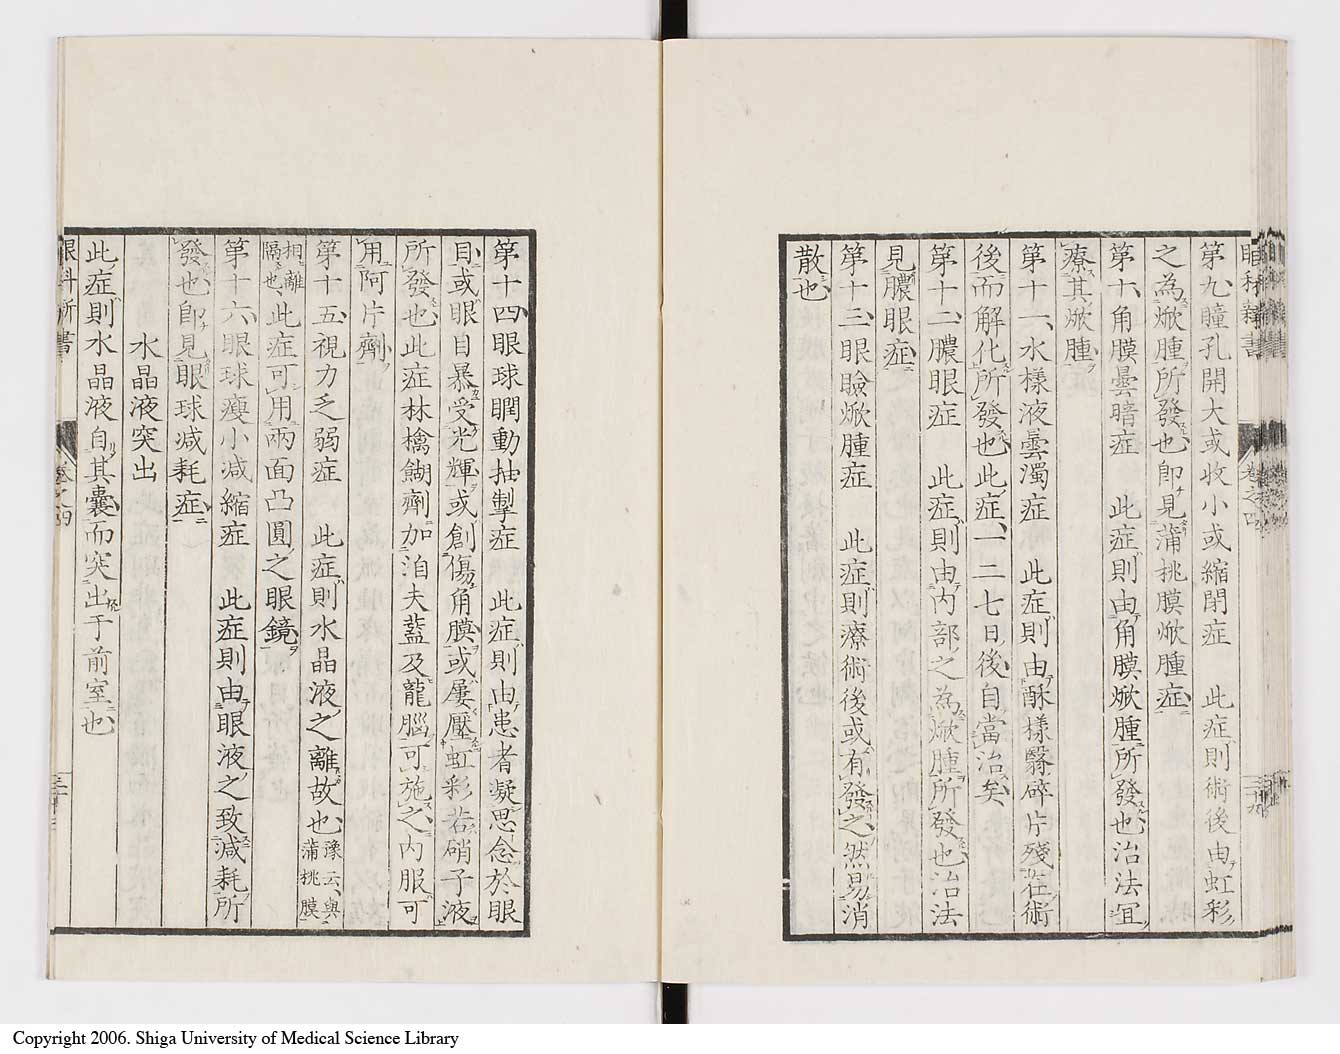 眼科新書
卷之四
三十九
第九瞳孔開大或收小或縮閉症　此症則術後由虹彩
之為焮腫所發也卽見蒲桃膜焮腫症
第十角膜曇暗症　此症則由角膜焮腫所發也治法宜
療其焮腫
第十一水樣液曇濁症　此症則由酥樣翳碎片殘在術
後而解化所發也此症一二七日後自當治矣
第十二膿眼症　此症則由内部之為焮腫所發也治法
見膿眼症
第十三眼瞼焮腫症　此症則療術後或有發之然易消
散也
第十四眼球瞤動抽掣症　此症則由患者凝思念於眼
目或眼目暴受光輝或創傷角膜或屢壓虹彩若硝子液
所發也此症林檎餬劑加泊夫藍及龍腦可施之内服可
用阿片劑
第十五視力乏弱症　此症則水晶液之離故也豫云與蒲桃膜
相離隔也此症可用兩面凸圓之眼鏡
第十六眼球瘦小減縮症　此症則由眼液之致減耗所
發也卽見眼球減耗症
水晶液突出
此症則水晶液自其囊而突出于前室也
眼科新書
卷之四
Copyright 2006. Shiga University of Medical Science Library